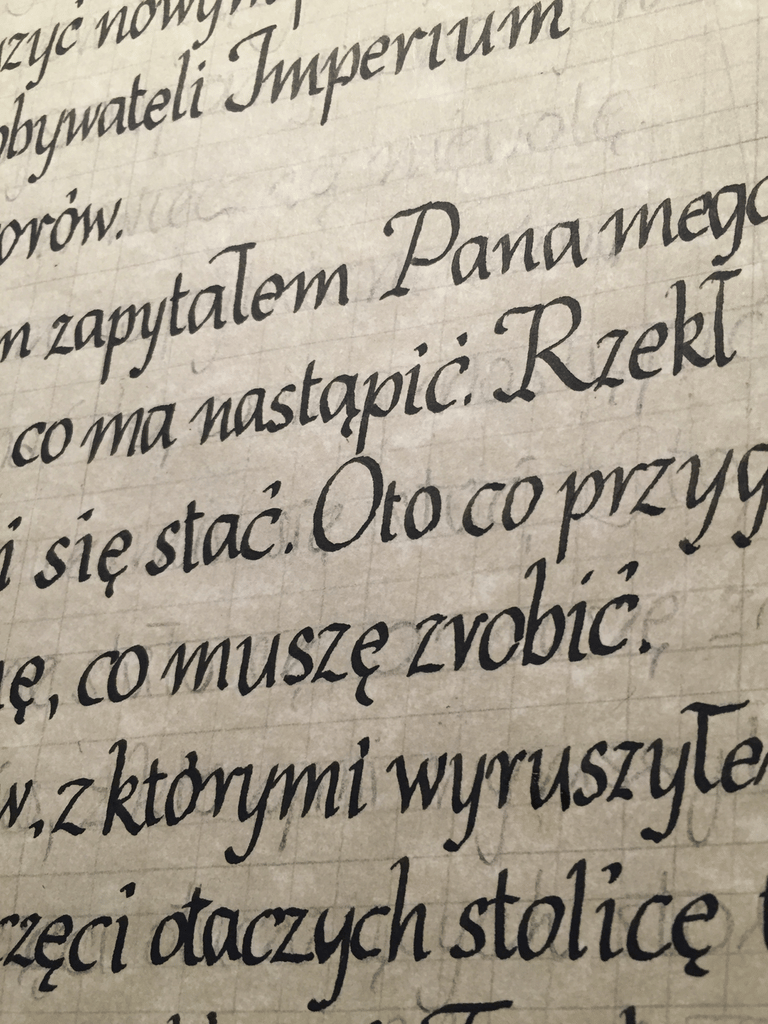 zyć nowym
obywateli Imperium
orów.
m zapytałem Pana mego
co ma nastąpić. Rzekł
i się stać. Oto co przyg
ę, co muszę zrobić.
w, z którymi wyruszyłe
częci otaczych stolicę